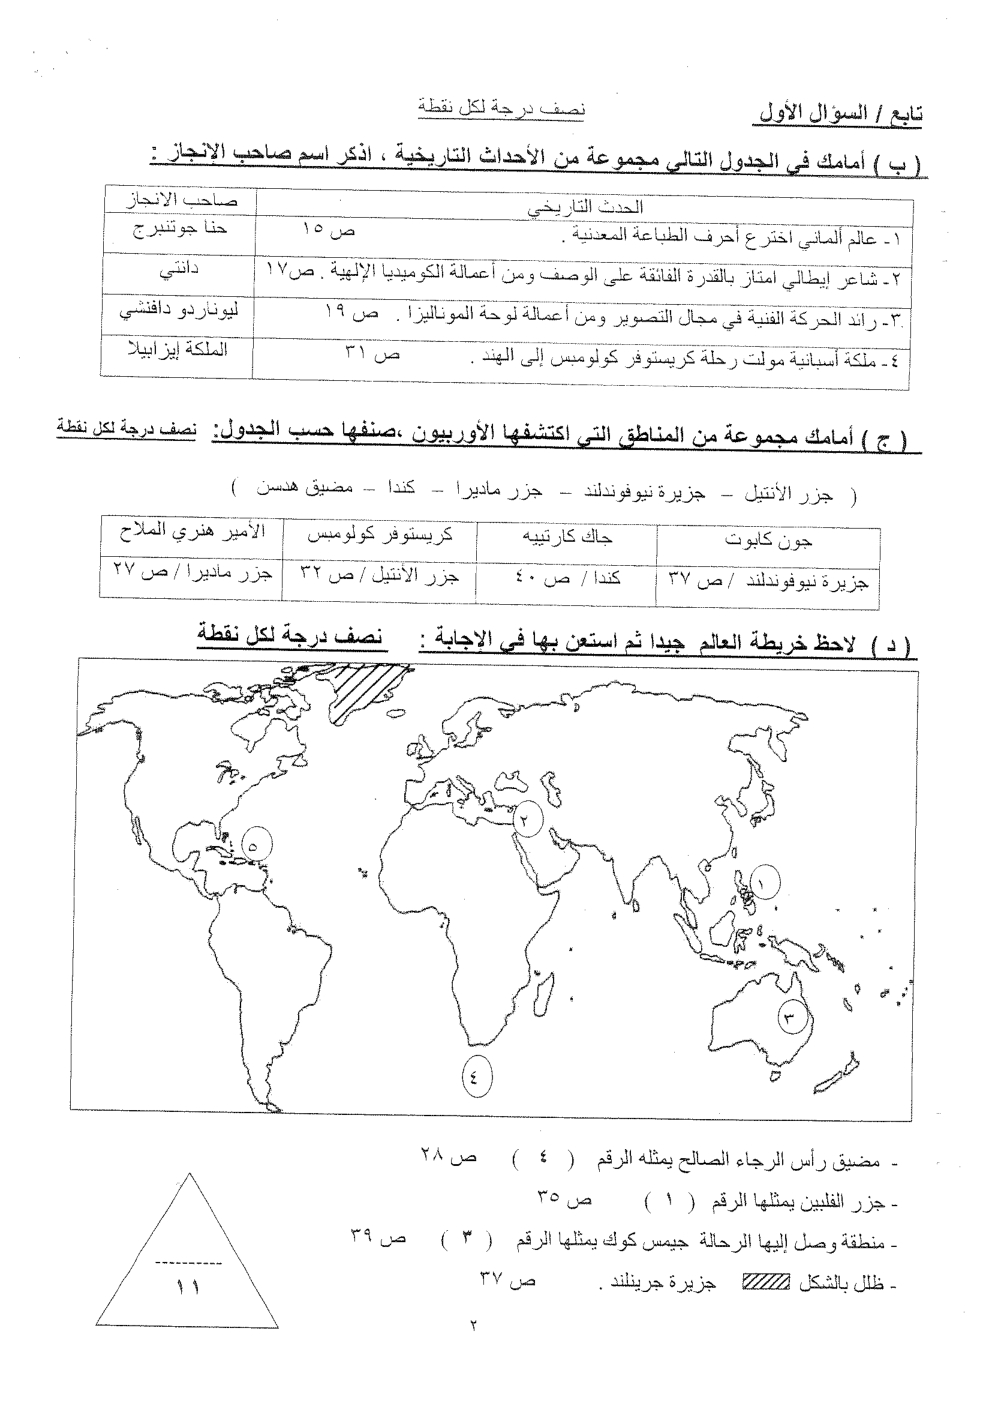 تابع / السؤال الأول نصف درجة لكل نقطة
( ب ) أمامك في الجدول التالي مجموعة من الأحداث التاريخية ، اذكر اسم صاحب الإنجاز :
الحدث التاريخي صاحب الانجاز
١- عالم ألماني اخترع أحرف الطباعة المعدنية . ص ١٥ حنا جوتنبرج
٢- شاعر إيطالي امتاز بالقدرة الفائقة على الوصف ومن أعمالة الكوميديا الإلهية . ص١٧ دانتي
٣- رائد الحركة الفنية في مجال التصوير ومن أعمالة لوحة الموناليزا . ص ١٩ ليوناردو دافنشي
٤- ملكة أسبانية مولت رحلة كريستوفر كولومبس إلى الهند . ص ٣١ الملكة إيزابيلا
( ج ) أمامك مجموعة من المناطق التي اكتشفها الأوربيون ،صنفها حسب الجدول: نصف درجة لكل نقطة
( جزر الأنتيل – جزيرة نيوفوندلند – جزر ماديرا – كندا – مضيق هدسن )
جون كابوت جاك كارتييه كريستوفر كولومبس الأمير هنري الملاح
جزيرة نيوفوندلند / ص ٣٧ كندا / ص ٤٠ جزر الأنتيل / ص ٣٢ جزر ماديرا / ص ٢٧
( د ) لاحظ خريطة العالم جيدا ثم استعن بها في الإجابة : نصف درجة لكل نقطة
٢
٥
١
٣
٤
- مضيق رأس الرجاء الصالح يمثله الرقم ( ٤ ) ص ٢٨
- جزر الفلبين يمثلها الرقم ( ١ ) ص ٣٥
- منطقة وصل إليها الرحالة جيمس كوك يمثلها الرقم ( ٣ ) ص ٣٩
- ظلل بالشكل جزيرة جرينلند . ص ٣٧
١١
٢